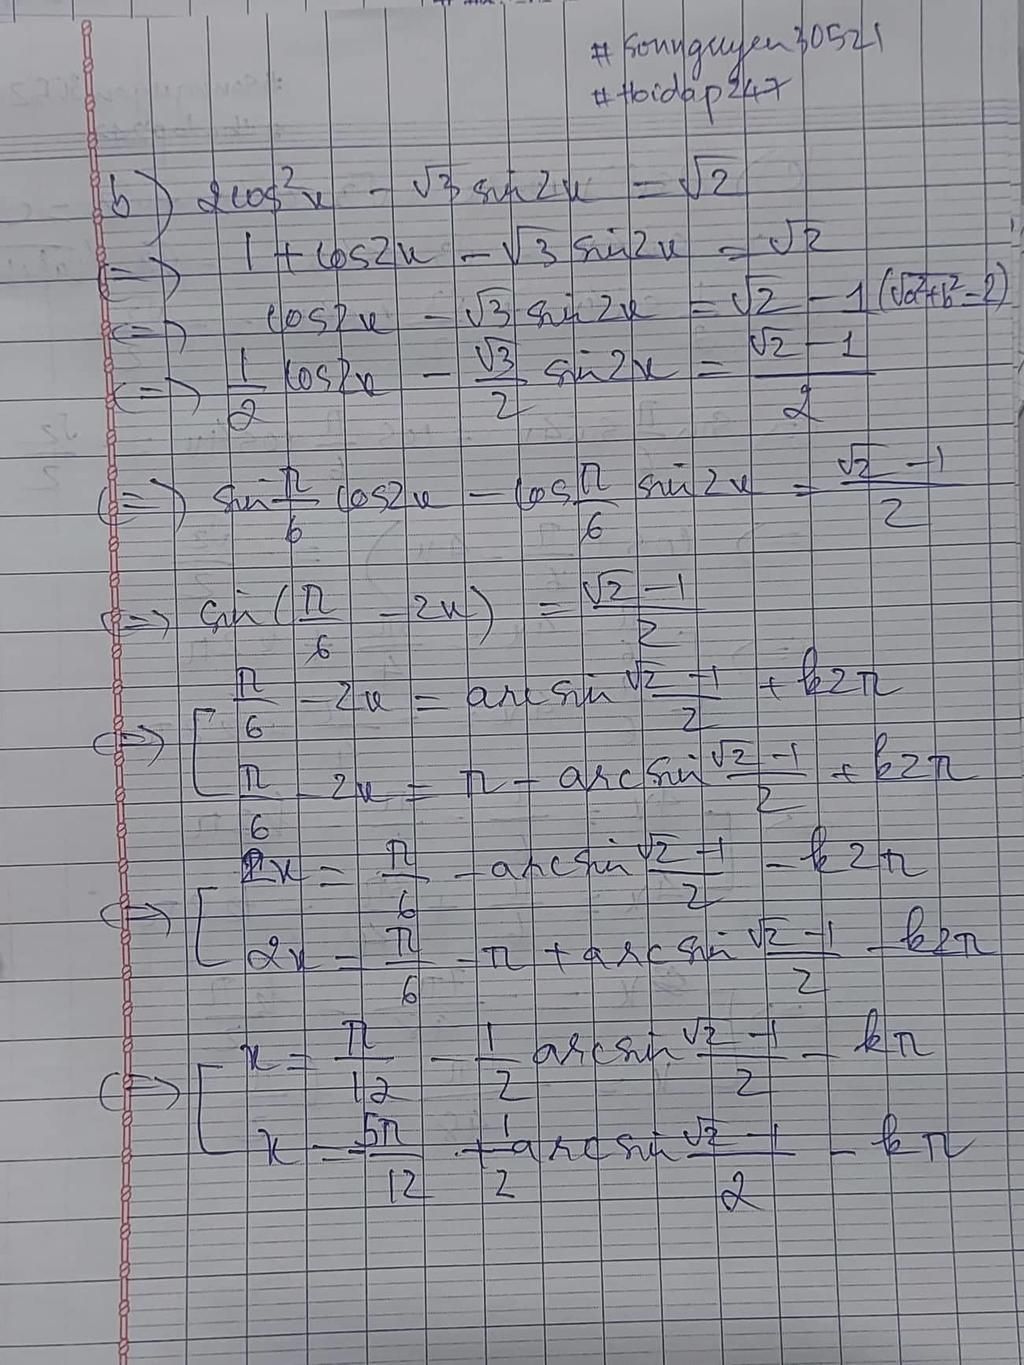 #sonnguyen30521
#Hoidap247
b) 2cos²x - √3 sin2x = √2
<=> 1 + cos2x - √3 sin2x = √2
<=> cos2x - √3 sin2x = √2 - 1 (√a²+b² = 2)
<=> 1/2 cos2x - √3/2 sin2x = (√2 - 1)/2
<=> sin π/6 cos2x - cos π/6 sin2x = (√2 - 1)/2
<=> sin(π/6 - 2x) = (√2 - 1)/2
<=> [ π/6 - 2x = arcsin (√2 - 1)/2 + k2π
π/6 - 2x = π - arcsin (√2 - 1)/2 + k2π
<=> [ 2x = π/6 - arcsin (√2 - 1)/2 - k2π
2x = π/6 - π + arcsin (√2 - 1)/2 - k2π
<=> [ x = π/12 - 1/2 arcsin (√2 - 1)/2 - kπ
x = 5π/12 + 1/2 arcsin (√2 - 1)/2 - kπ